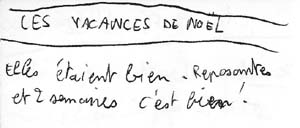 LES VACANCES DE NOËL
Elles étaient bien. Reposantes
et 2 semaines c'est bien!